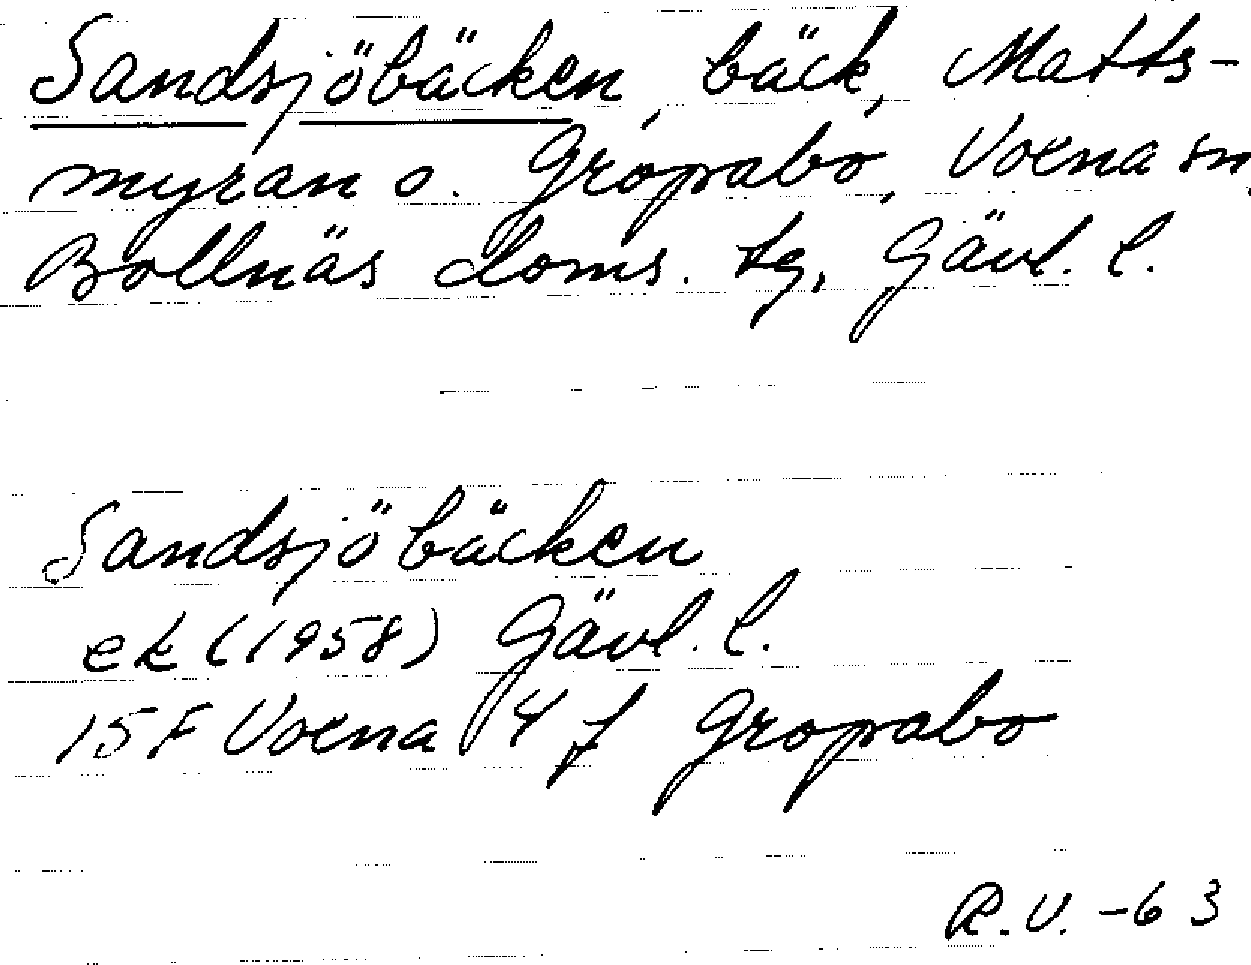 Sandsjöbäcken, bäck, Matts-
myran o. Gropabo, Voxna sn,
Bollnäs doms. tg, Gävl. l.
Sandsjöbäcken
ek (1958) Gävl. l.
15F Voxna 4 f Gropabo
R.V. -63